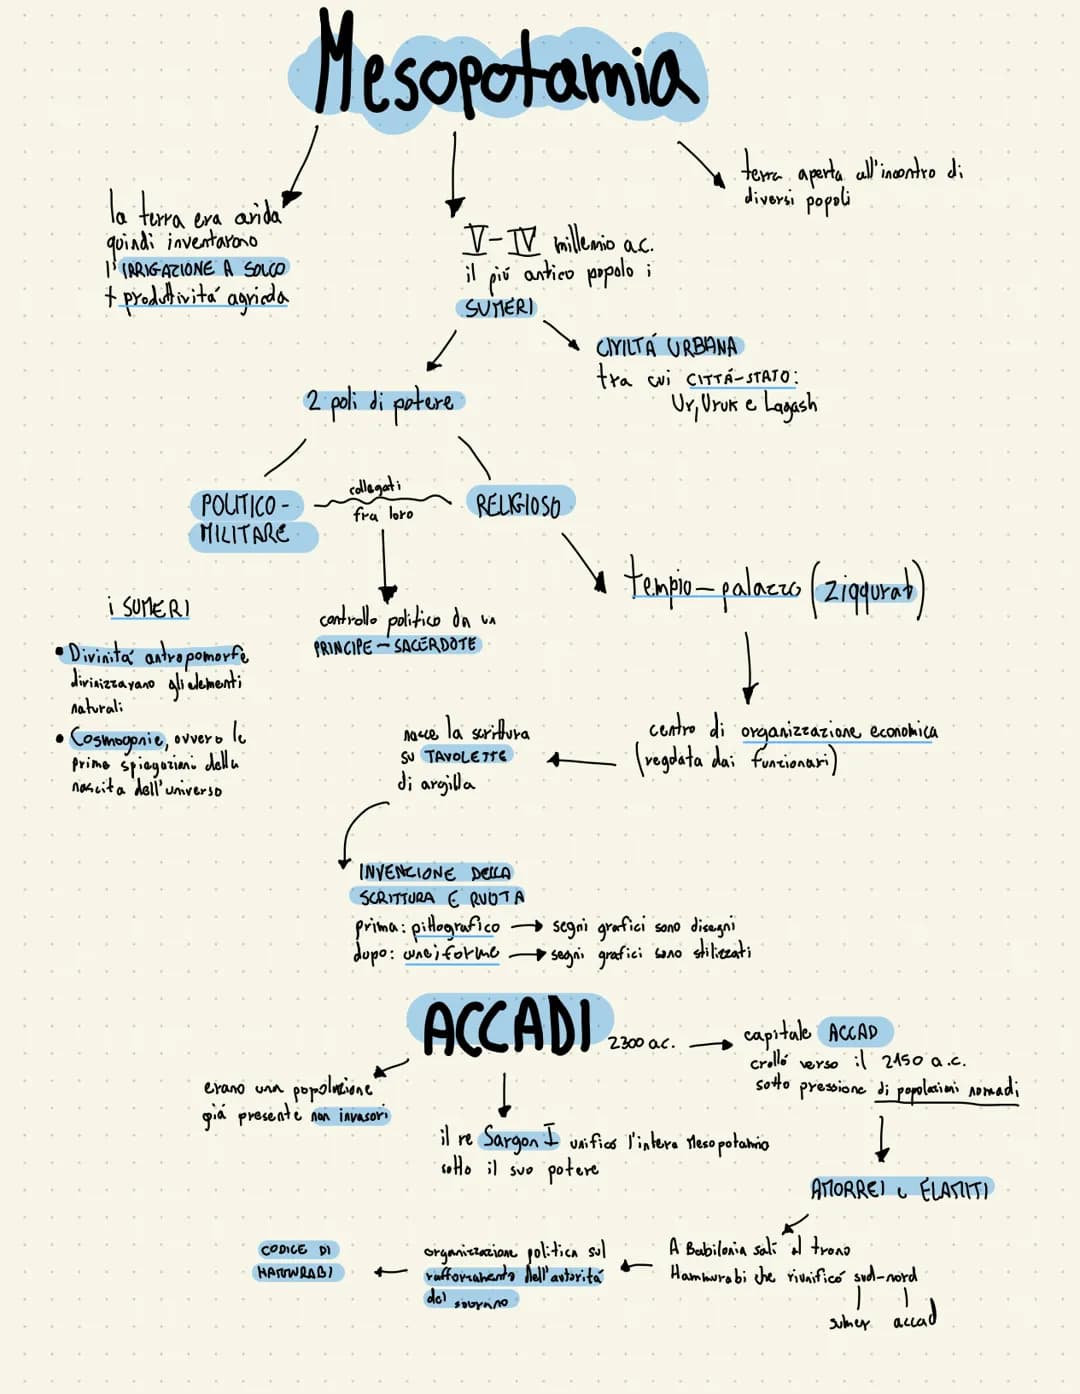 Mesopotamia
la terra era arida
quindi inventarono
l'IRRIGAZIONE A SOLCO
+ produttivitá agricola
V-IV millennio a.c.
il piú antico popolo i
SUMERI
terra aperta all'incontro di
diversi popoli
CIVILTÁ URBANA
tra cui CITTÁ-STATO:
Ur, Uruk e Lagash
2 poli di potere
POLITICO-
MILITARE
collegati
fra loro
RELIGIOSO
controllo politico da un
PRINCIPE-SACERDOTE
tempio-palazzo (ziqqurat)
i SUMERI
• Divinitá antropomorfe
divinizzavano gli elementi
naturali
• Cosmogonie, ovvero le
prime spiegazioni della
nascita dell'universo
centro di organizzazione economica
(regolata dai funzionari)
nasce la scrittura
su TAVOLETTE
di argilla
INVENZIONE DELLA
SCRITTURA E RUOTA
prima: pittografico → segni grafici sono disegni
dopo: cuneiforme → segni grafici sono stilizzati
ACCADI 2300 a.c. →
capitale ACCAD
crolló verso il 2150 a.c.
sotto pressione di popolazioni nomadi
erano una popolazione
giá presente non invasori
il re Sargon I unificó l'intera Mesopotamia
sotto il suo potere
AMORREI e ELAMITI
A Babilonia salí al trono
Hammurabi che riunificó sud-nord
sumer accad
organizzazione politica sul
rafforzamento dell'autoritá
del sovrano
CODICE DI
HAMMURABI